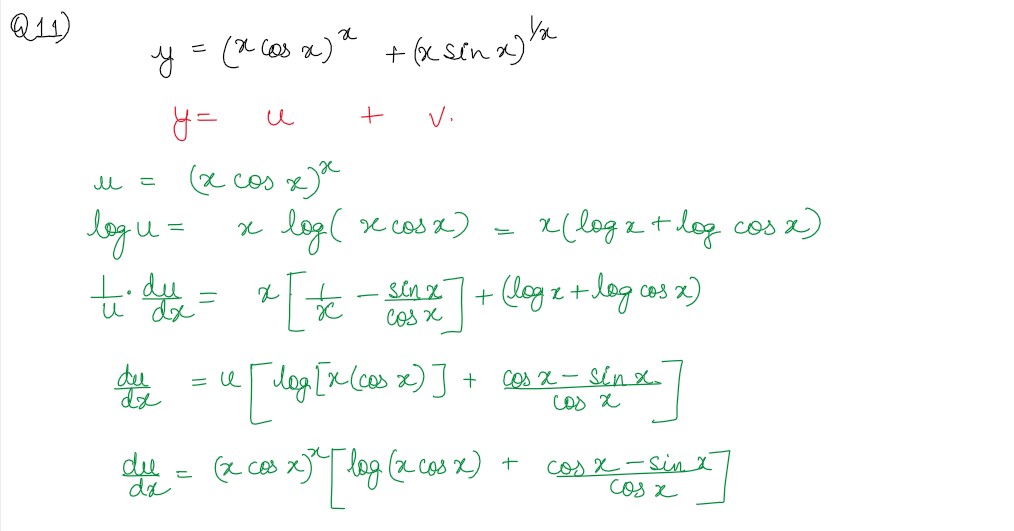 Q11)
y = (x cos x)^x + (x sin x)^1/x
y = u + v.
u = (x cos x)^x
log u = x log( x cos x) = x(log x + log cos x)
1/u · du/dx = x [1/x − sin x/cos x] + (log x + log cos x)
du/dx = u [log[x(cos x)] + cos x − sin x/cos x]
du/dx = (x cos x)^x [log(x cos x) + cos x − sin x/cos x]